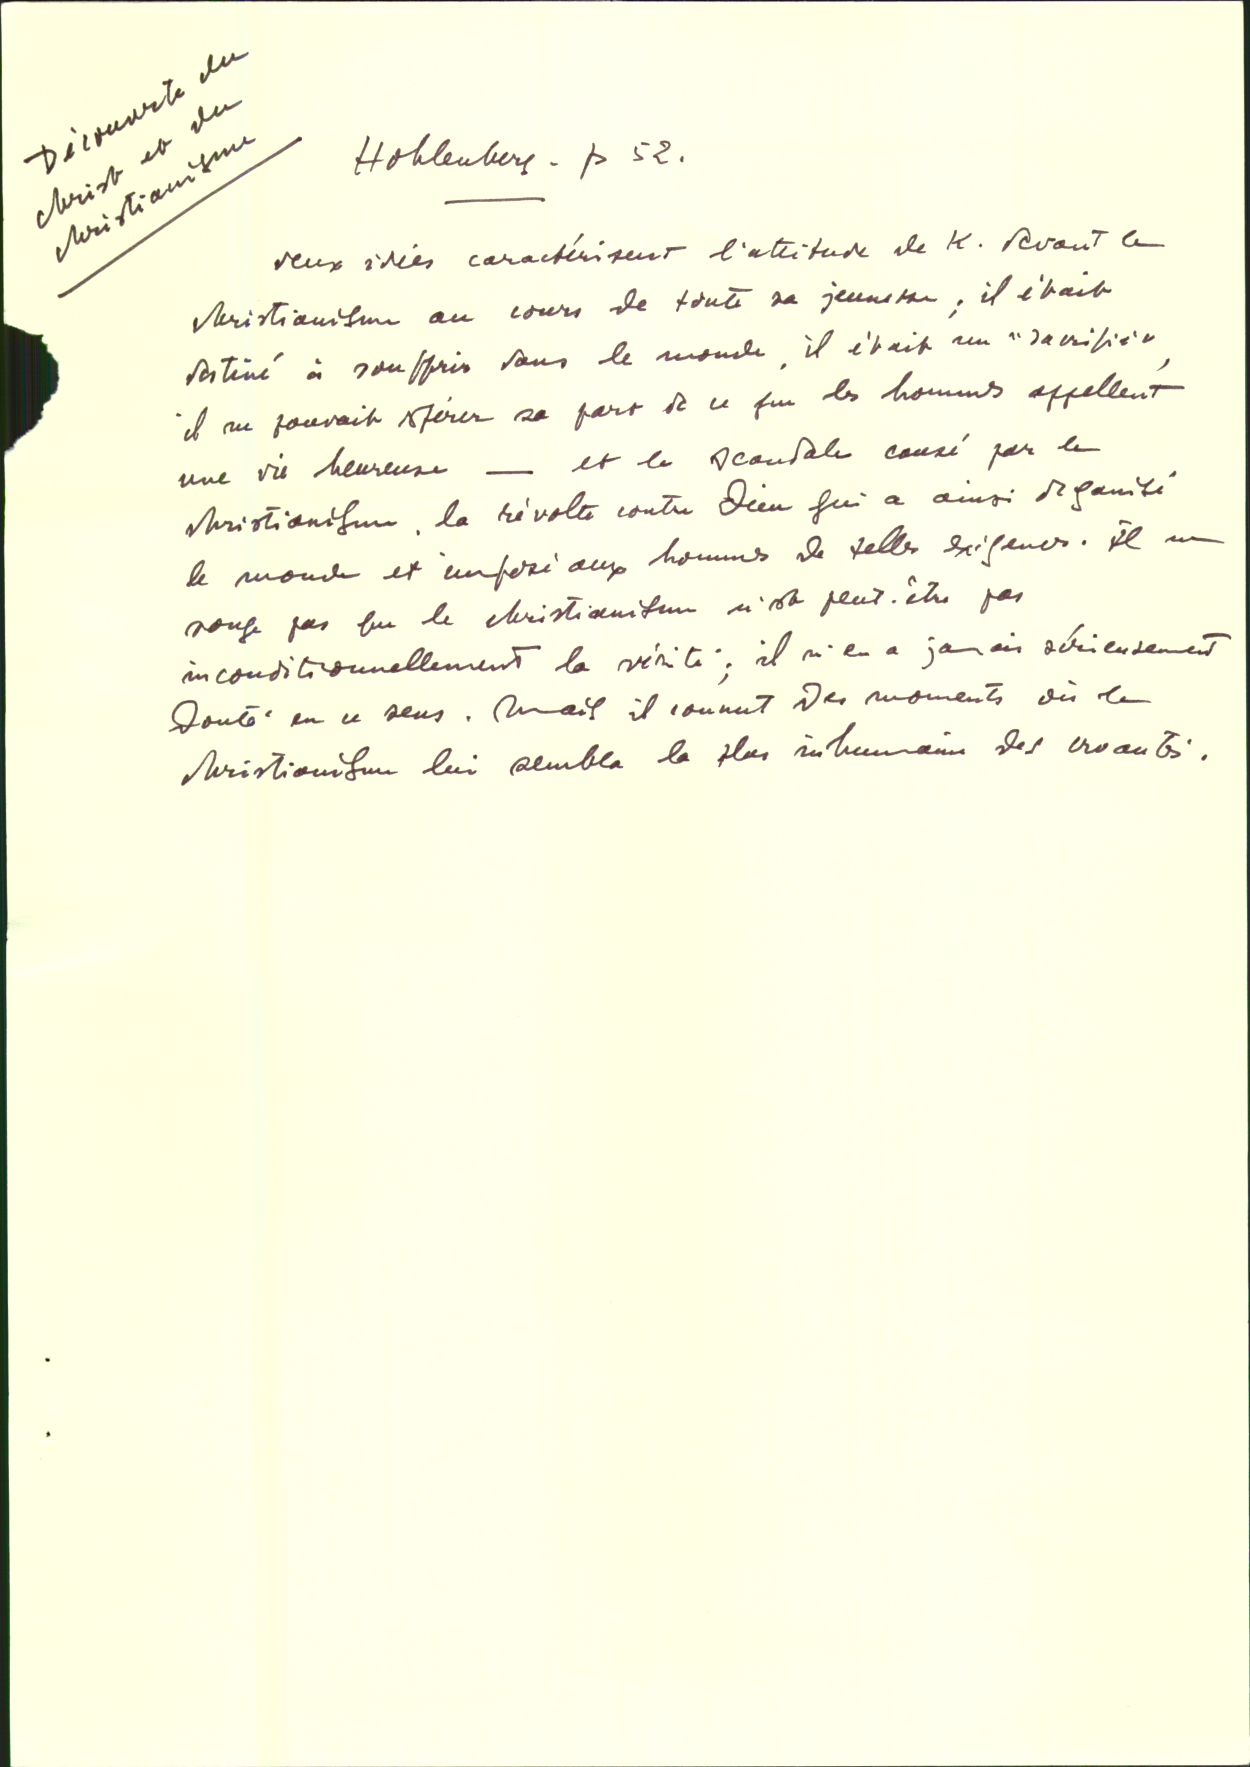 Découverte du
christ et du
christianisme
Hohlenberg - p 52.
deux idées caractérisent l'attitude de K. devant le
christianisme au cours de toute sa jeunesse ; il était
destiné à souffrir dans le monde, il était un "sacrifié",
il ne pouvait espérer sa part de ce que les hommes appellent
une vie heureuse — et le scandale causé par le
christianisme, la révolte contre Dieu qui a ainsi organisé
le monde et imposé aux hommes de telles exigences. Il ne
songe pas que le christianisme n'est peut-être pas
inconditionnellement la vérité ; il n'en a jamais sérieusement
douté en ce sens. Mais il connut des moments où le
christianisme lui sembla la plus inhumaine des cruautés.